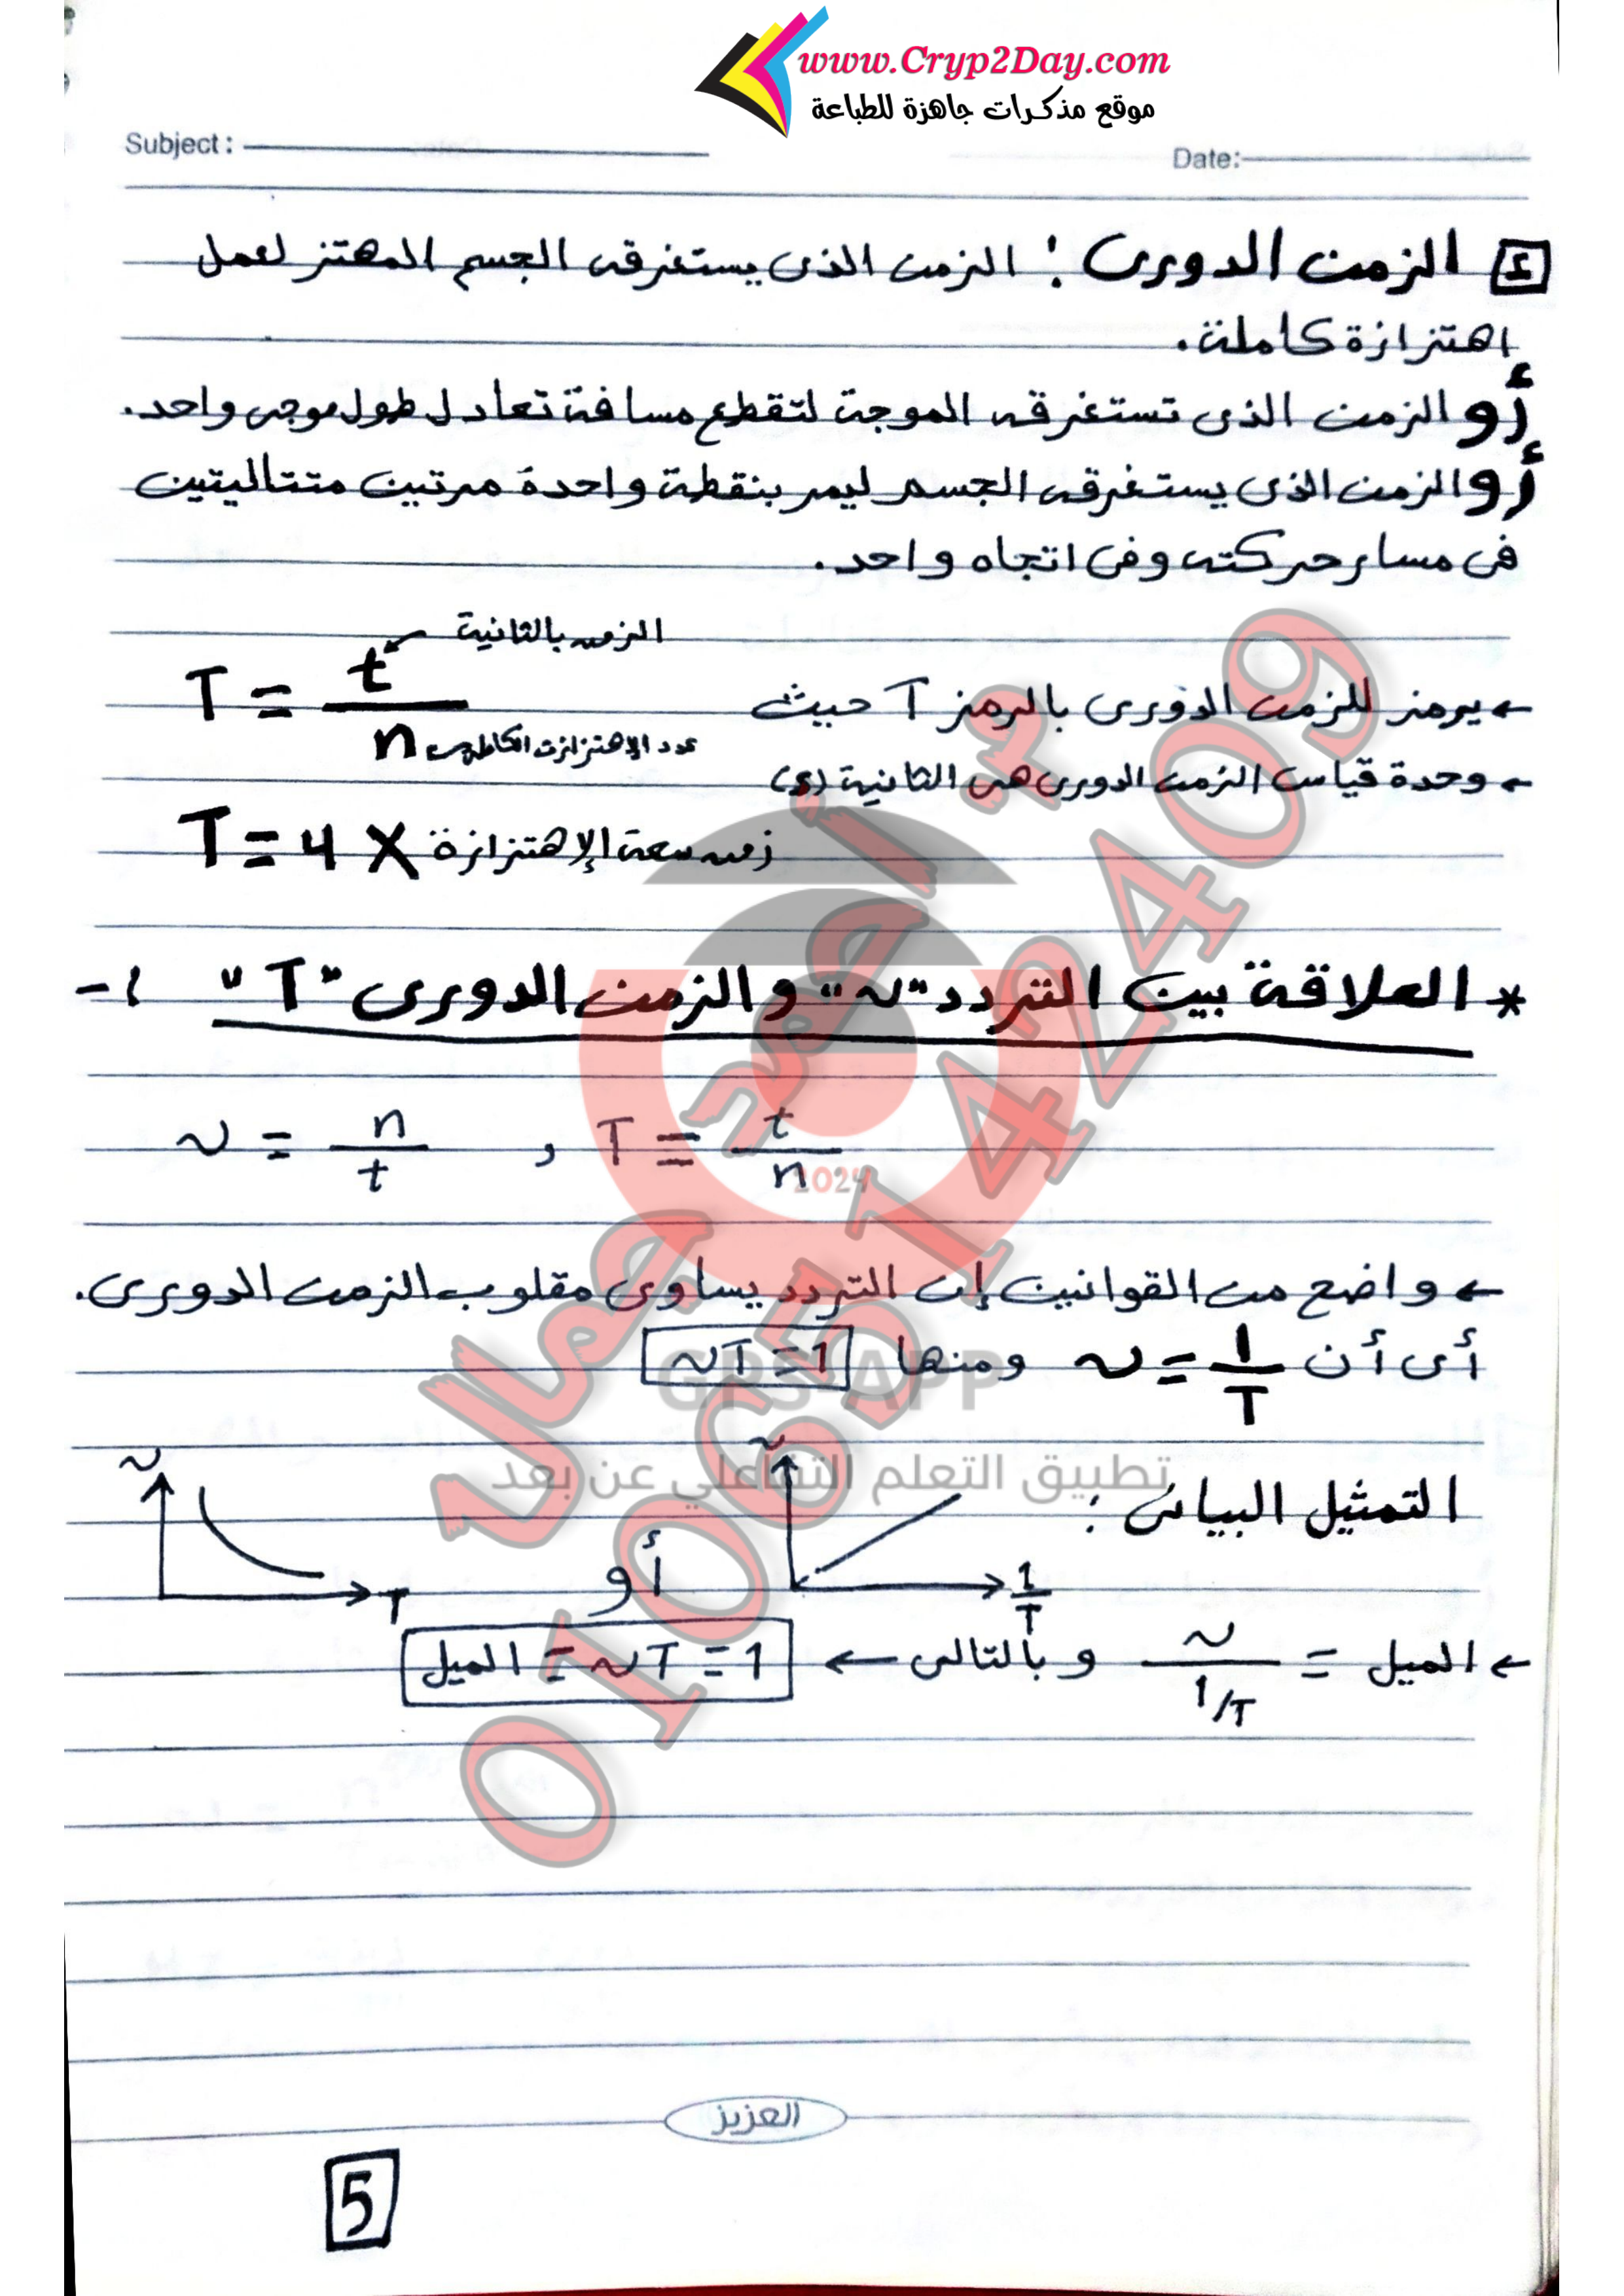 www.Cryp2Day.com
موقع مذكرات جاهزة للطباعة
Subject :
Date:
٤ الزمن الدورى : الزمن الذى يستغرقه الجسم المهتز لعمل
اهتزازة كاملة.
أو الزمن الذى تستغرقه الموجة لتقطع مسافة تعادل طول موجى واحد.
أو الزمن الذى يستغرقه الجسم ليمر بنقطة واحدة مرتين متتاليتين
فى مسار حركته وفى اتجاه واحد.
← يرمز للزمن الدورى بالرمز T حيث
T = t / n
الزمن بالثانية
عدد الإهتزازت الكاملة
← وحدة قياس الزمن الدورى هى الثانية (s)
T = 4 × زمن سعة الإهتزازة
* العلاقة بين التردد "ν" والزمن الدورى "T" :-
ν = n / t , T = t / n
← واضح من القوانين إن التردد يساوى مقلوب الزمن الدورى.
أى أن ν = 1 / T ومنها νT = 1
التمثيل البيانى :
ν
1/T
أو
ν
T
← الميل = ν / 1/T وبالتالى ← الميل = νT = 1
العزيز
5
أ/ محمد جمال
01065142409
2024
GPS-APP
تطبيق التعلم التفاعلي عن بعد